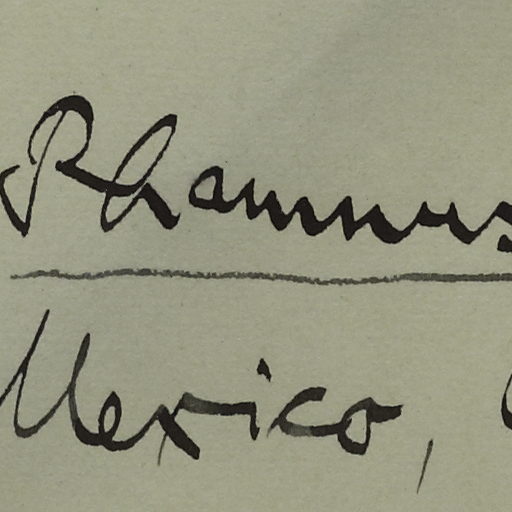 Rhamnus
Mexico,